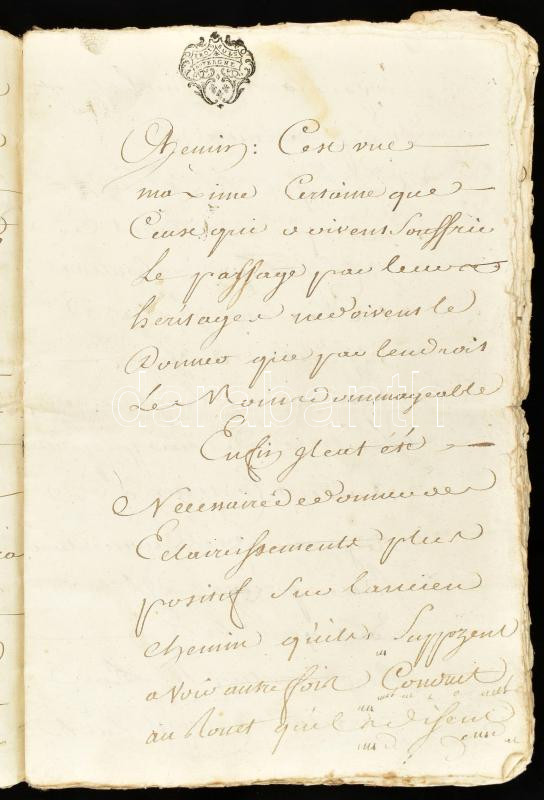 chemin: C'est une
maxime Certaine que
Ceux qui doivent Souffrir
Le passage par leurs
heritages ne doivent le
donner que par lendroit
Le Moins dommageable
Enfin il eut été
Necessaire de donner des
Eclaircissements plus
positif Sur lancien
chemin quils Supposent
avoir autre fois Conduit
au quils disent
darabanth